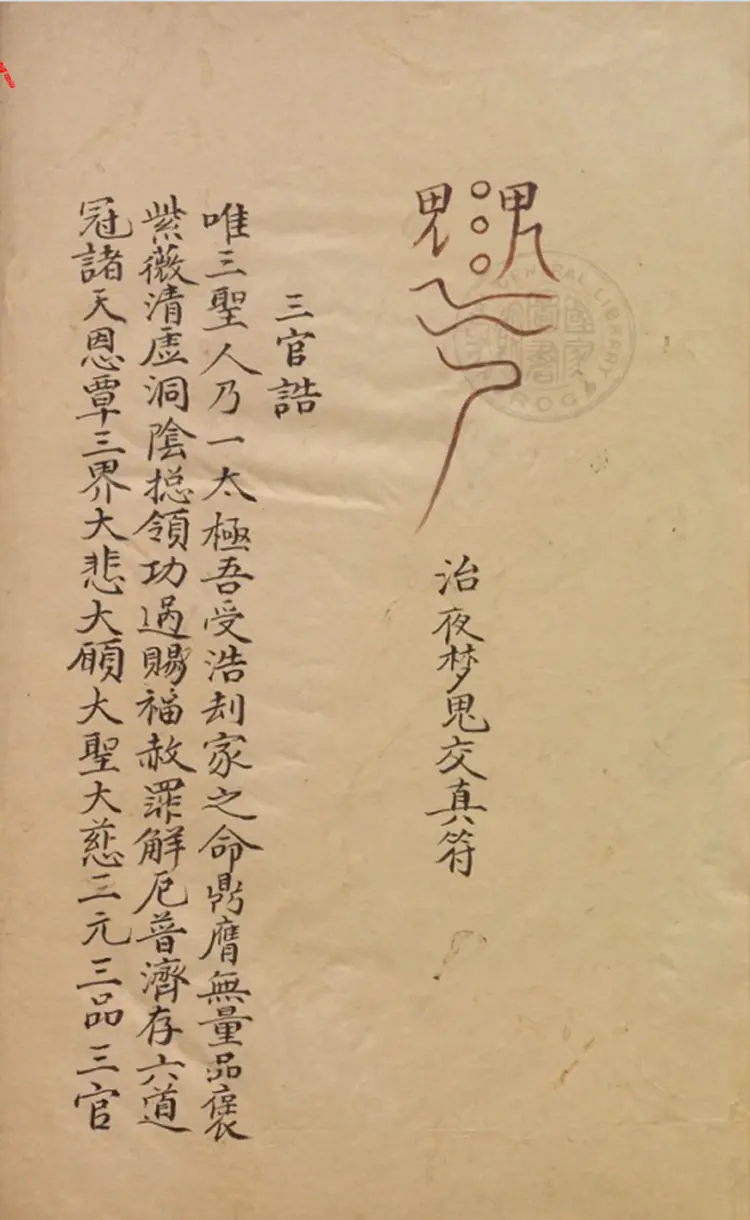 治夜梦鬼交真符
三官誥
唯三聖人乃一太極吾受浩刦家之命鼎膺無量品褒
紫薇清虛洞陰揔領功過賜福赦罪解厄普濟存六道
冠諸天恩覃三界大悲大願大聖大慈三元三品三官